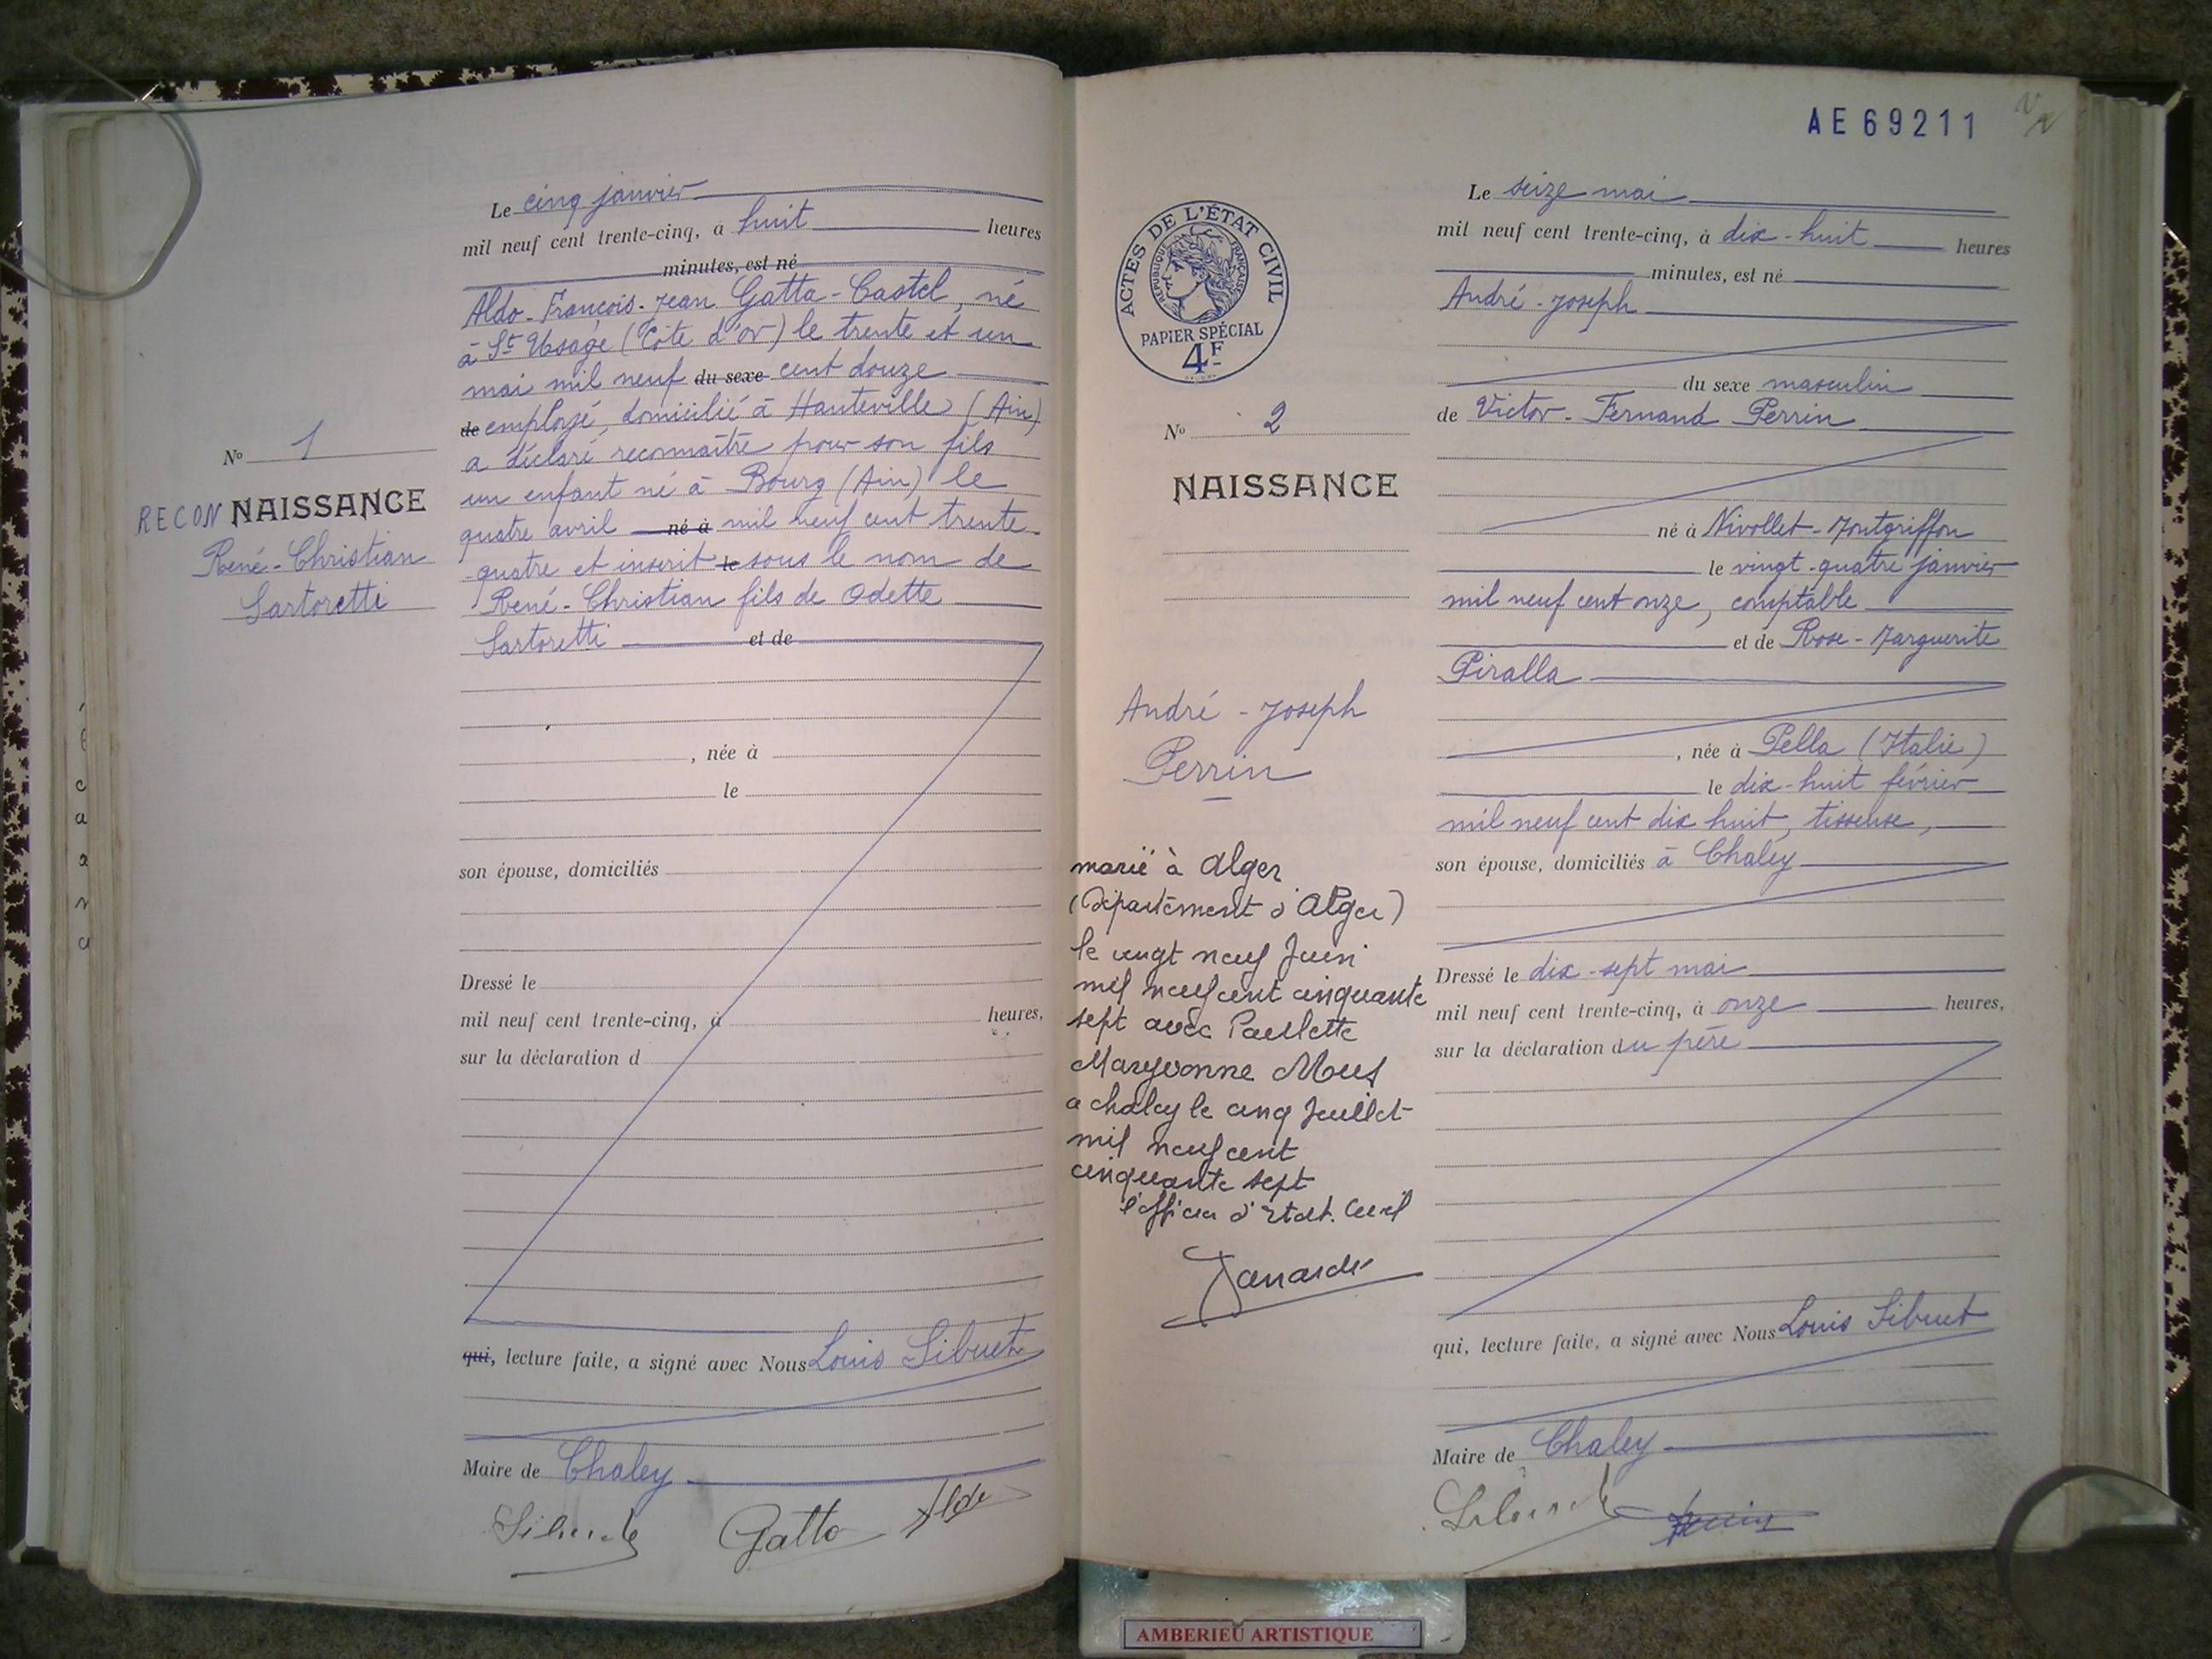 Le cinq janvier
mil neuf cent trente-cinq, à huit heures
minutes, est né
Aldo-François-Jean Gatta-Castel, né
à St Usage (Côte d'or) le trente et un
mai mil neuf du sexe cent douze
de employé, domicilié à Hauteville (Ain)
a déclaré reconnaître pour son fils
un enfant né à Bourg (Ain) le
quatre avril né à mil neuf cent trente-
quatre et inscrit le sous le nom de
René-Christian fils de Odette
Sartoretti et de
, née à
le
son épouse, domiciliés
Dressé le
mil neuf cent trente-cinq, à heures,
sur la déclaration d
qui, lecture faite, a signé avec Nous Louis Sibuet
Maire de Chaley
Gatto Aldo
No 1
RECONNAISSANCE
René-Christian
Sartoretti
AE69211
ACTES DE L'ÉTAT CIVIL
RÉPUBLIQUE FRANÇAISE
PAPIER SPÉCIAL
4F
No 2
NAISSANCE
André-Joseph
Perrin
marié à Alger
(Département d'Alger)
le vingt neuf Juin
mil neuf cent cinquante
sept avec Paulette
Maryvonne Mus
a chaley le cinq Juillet
mil neuf cent
cinquante sept
l'officier d'Etat. Civil
Le seize mai
mil neuf cent trente-cinq, à dix-huit heures
minutes, est né
André-Joseph
du sexe masculin
de Victor-Fernand Perrin
né à Nivollet-Montgriffon
le vingt-quatre janvier
mil neuf cent onze, comptable
et de Rose-Marguerite
Piralla
, née à Pella (Italie)
le dix-huit février
mil neuf cent dix huit, tisseuse,
son épouse, domiciliés à Chaley
Dressé le dix-sept mai
mil neuf cent trente-cinq, à onze heures,
sur la déclaration du père
qui, lecture faite, a signé avec Nous Louis Sibuet
Maire de Chaley
Perrin
AMBERIEU ARTISTIQUE